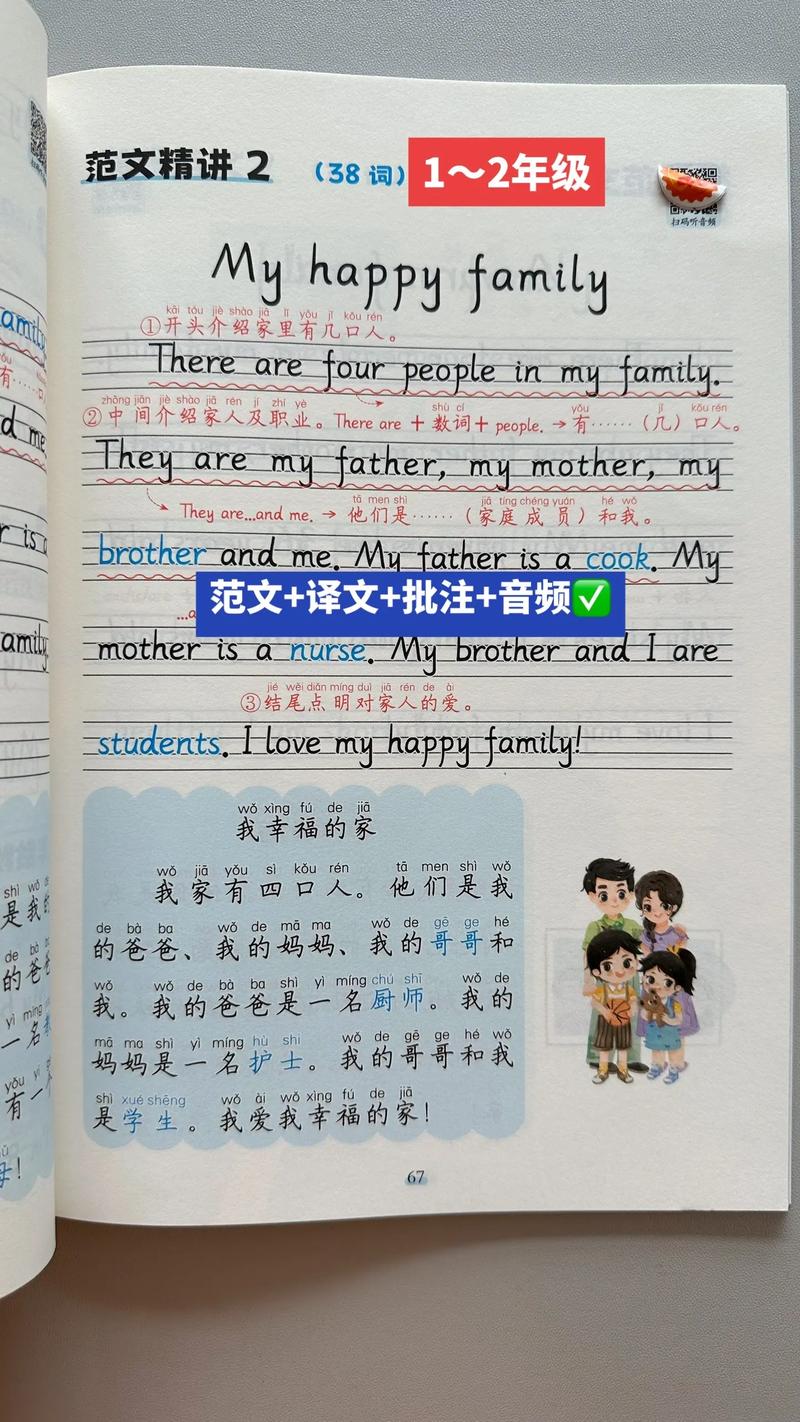 范文精讲 2 （38 词）
1～2年级
扫码听音频
My happy family
kāi tóu jiè shào jiā lǐ yǒu jǐ kǒu rén
①开头介绍家里有几口人。
There are four people in my family.
zhōng jiān jiè shào jiā rén jí zhí yè shù cí yǒu jǐ kǒu rén
②中间介绍家人及职业。There are + 数词 + people. → 有……（几）口人。
They are my father, my mother, my
tā men shì jiā tíng chéng yuán hé wǒ
They are...and me. → 他们是……（家庭成员）和我。
brother and me. My father is a cook. My
范文+译文+批注+音频✅
mother is a nurse. My brother and I are
jié wěi diǎn míng duì jiā rén de ài
③结尾点明对家人的爱。
students. I love my happy family!
wǒ xìng fú de jiā
我幸福的家
wǒ jiā yǒu sì kǒu rén tā men shì wǒ
我家有四口人。他们是我
de bà ba wǒ de mā ma wǒ de gē ge hé
的爸爸、我的妈妈、我的哥哥和
wǒ wǒ de bà ba shì yì míng chú shī wǒ de
我。我的爸爸是一名厨师。我的
mā ma shì yì míng hù shi wǒ de gē ge hé wǒ
妈妈是一名护士。我的哥哥和我
shì xué shēng wǒ ài wǒ xìng fú de jiā
是学生。我爱我幸福的家！
67